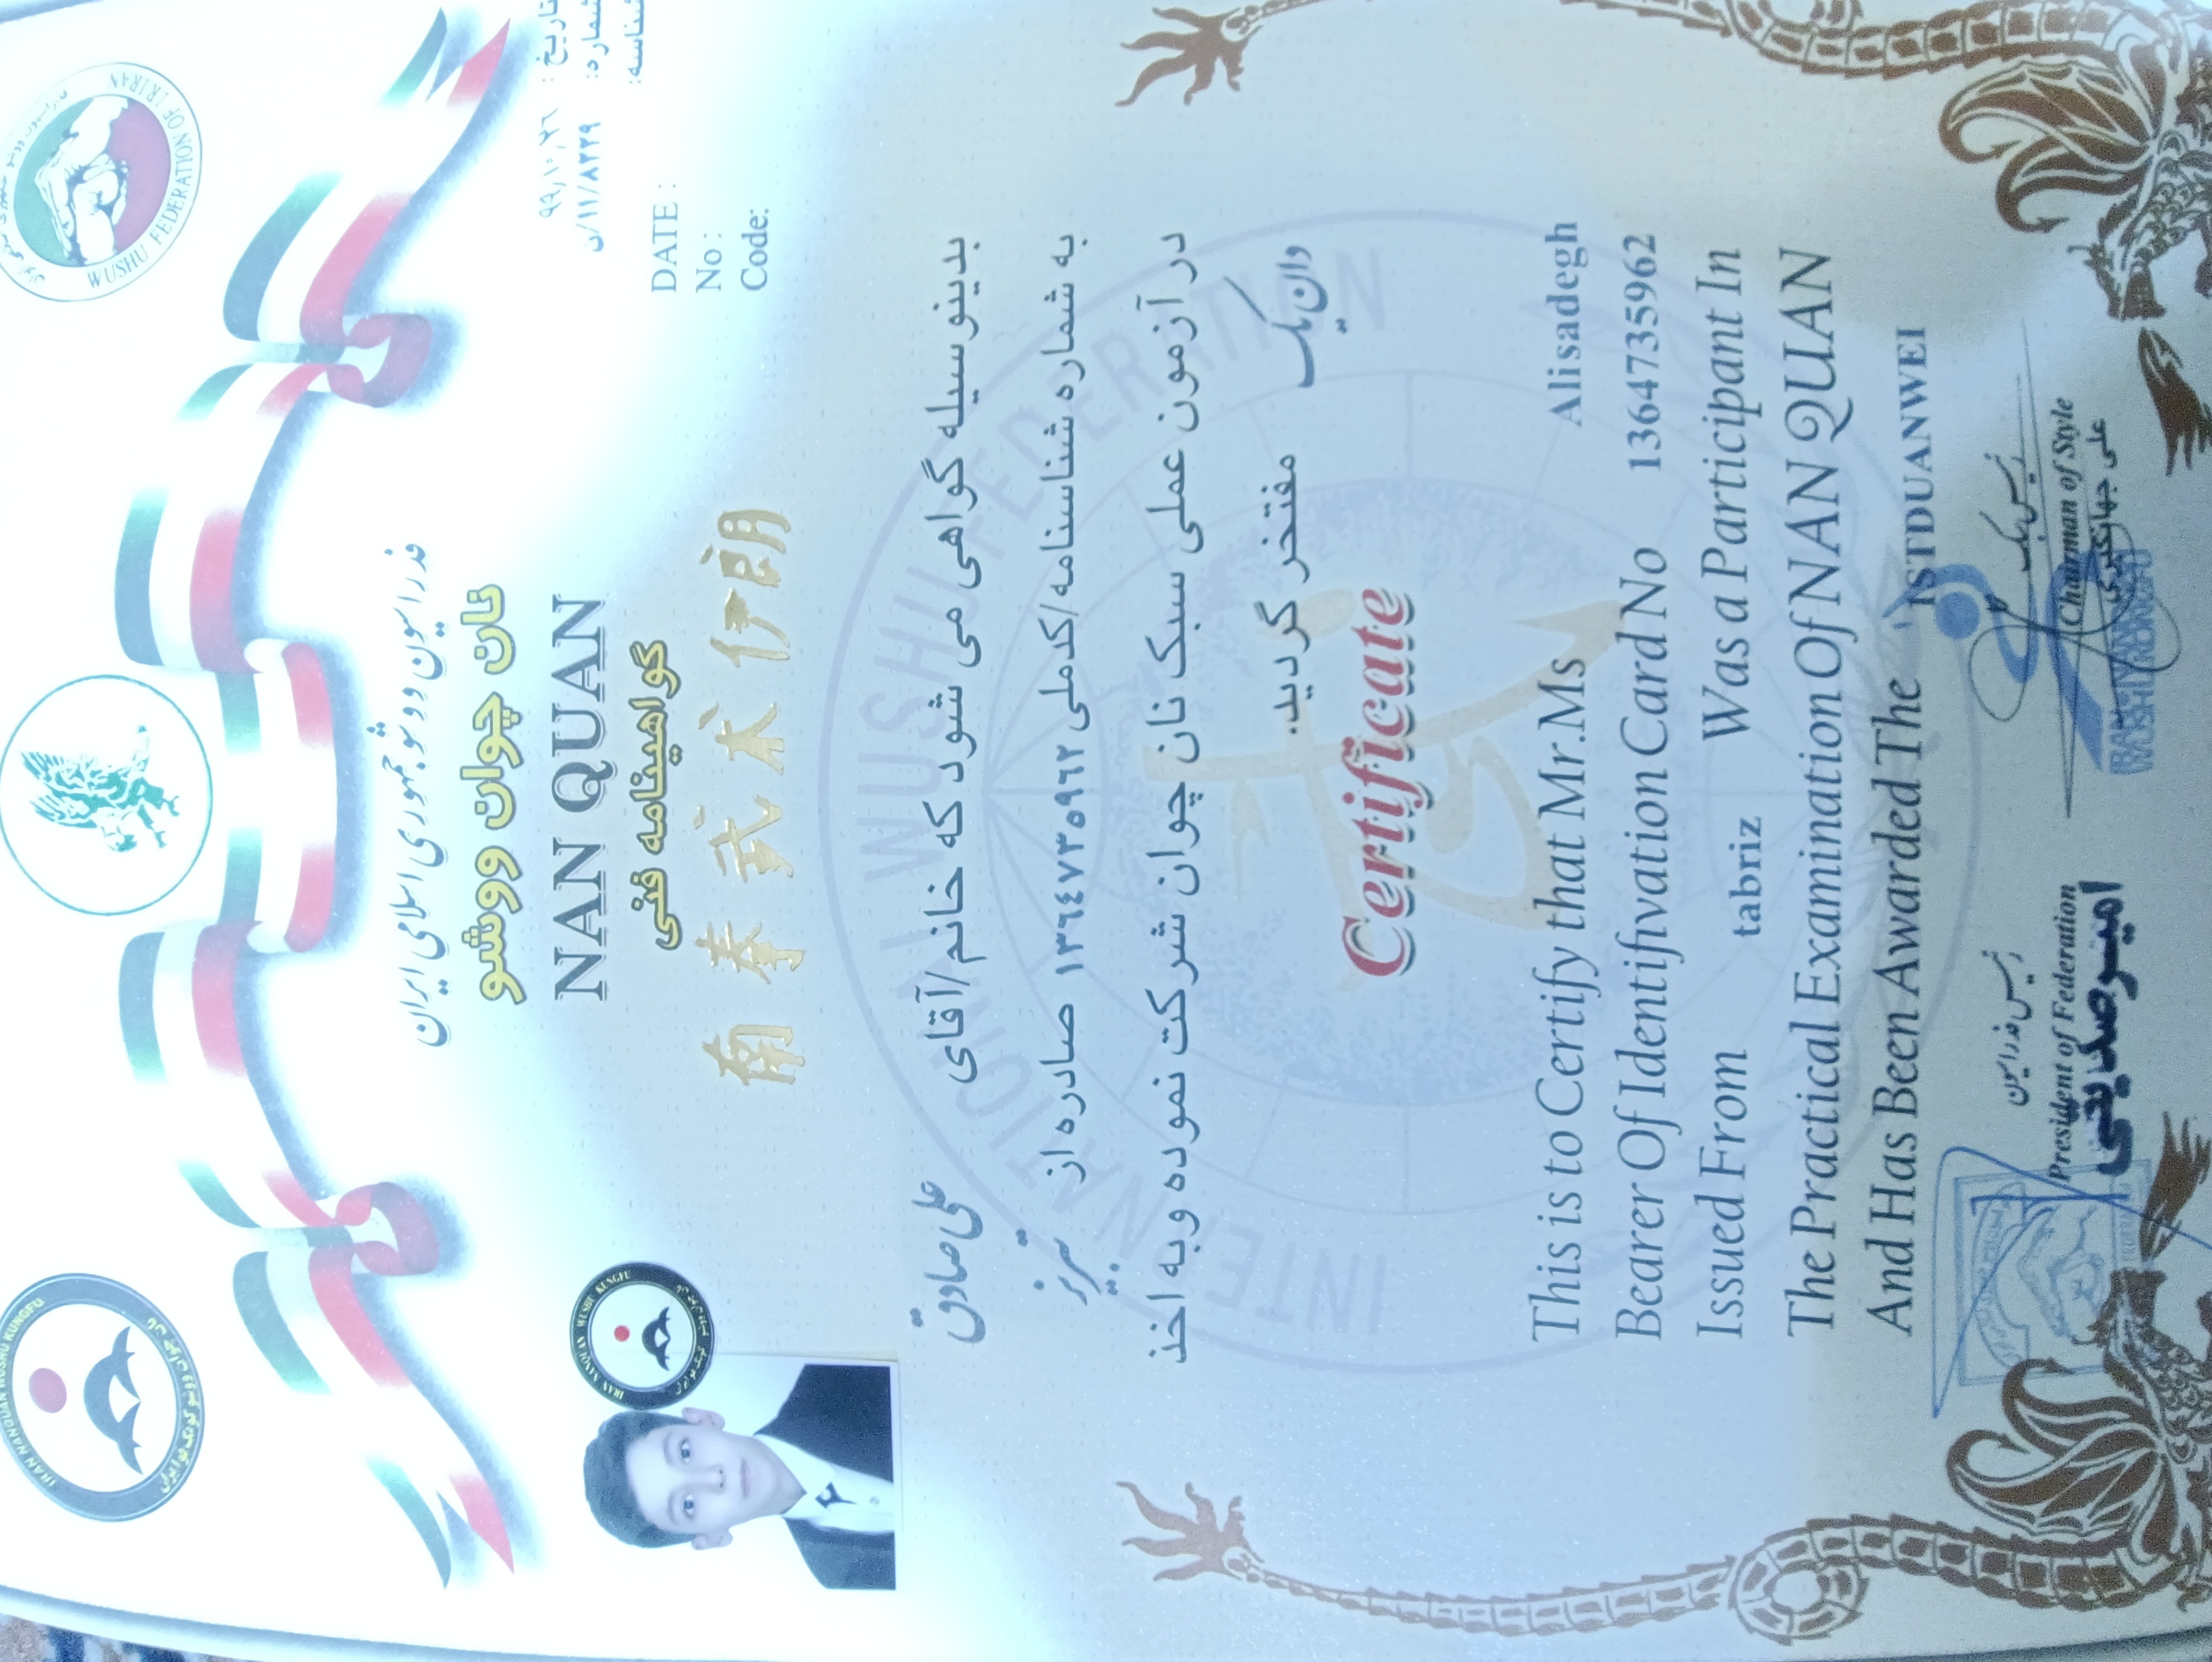 IRAN NANQUAN WUSHU KUNGFU
WUSHU FEDERATION OF I.R.IRAN
فدراسیون ووشو جمهوری اسلامی ایران
نان چوان ووشو
NAN QUAN
گواهینامه فنی
南拳武术伊朗
تاریخ :
شماره: ن/۱۱/۸۲۲۹
شناسه:
DATE :
No :
Code:
IRAN NANQUAN WUSHU KUNGFU
بدینوسیله گواهی می شود که خانم/آقای علی صادق
به شماره شناسنامه/کدملی ۱۳۶۴۷۳۵۹۶۲ صادره از تبریز
در آزمون عملی سبک نان چوان شرکت نموده وبه اخذ
دان یک مفتخر گردید.
INTERNATIONAL WUSHU FEDERATION
Certificate
This is to Certify that Mr.Ms Alisadegh
Bearer Of Identifivation Card No 1364735962
Issued From tabriz Was a Participant In
The Practical Examination Of NAN QUAN
And Has Been Awarded The 1STDUANWEI
رئیس فدراسیون
President of Federation
امیر صدیقی
رئیس سبک
Charman of Style
علی جهانگیری